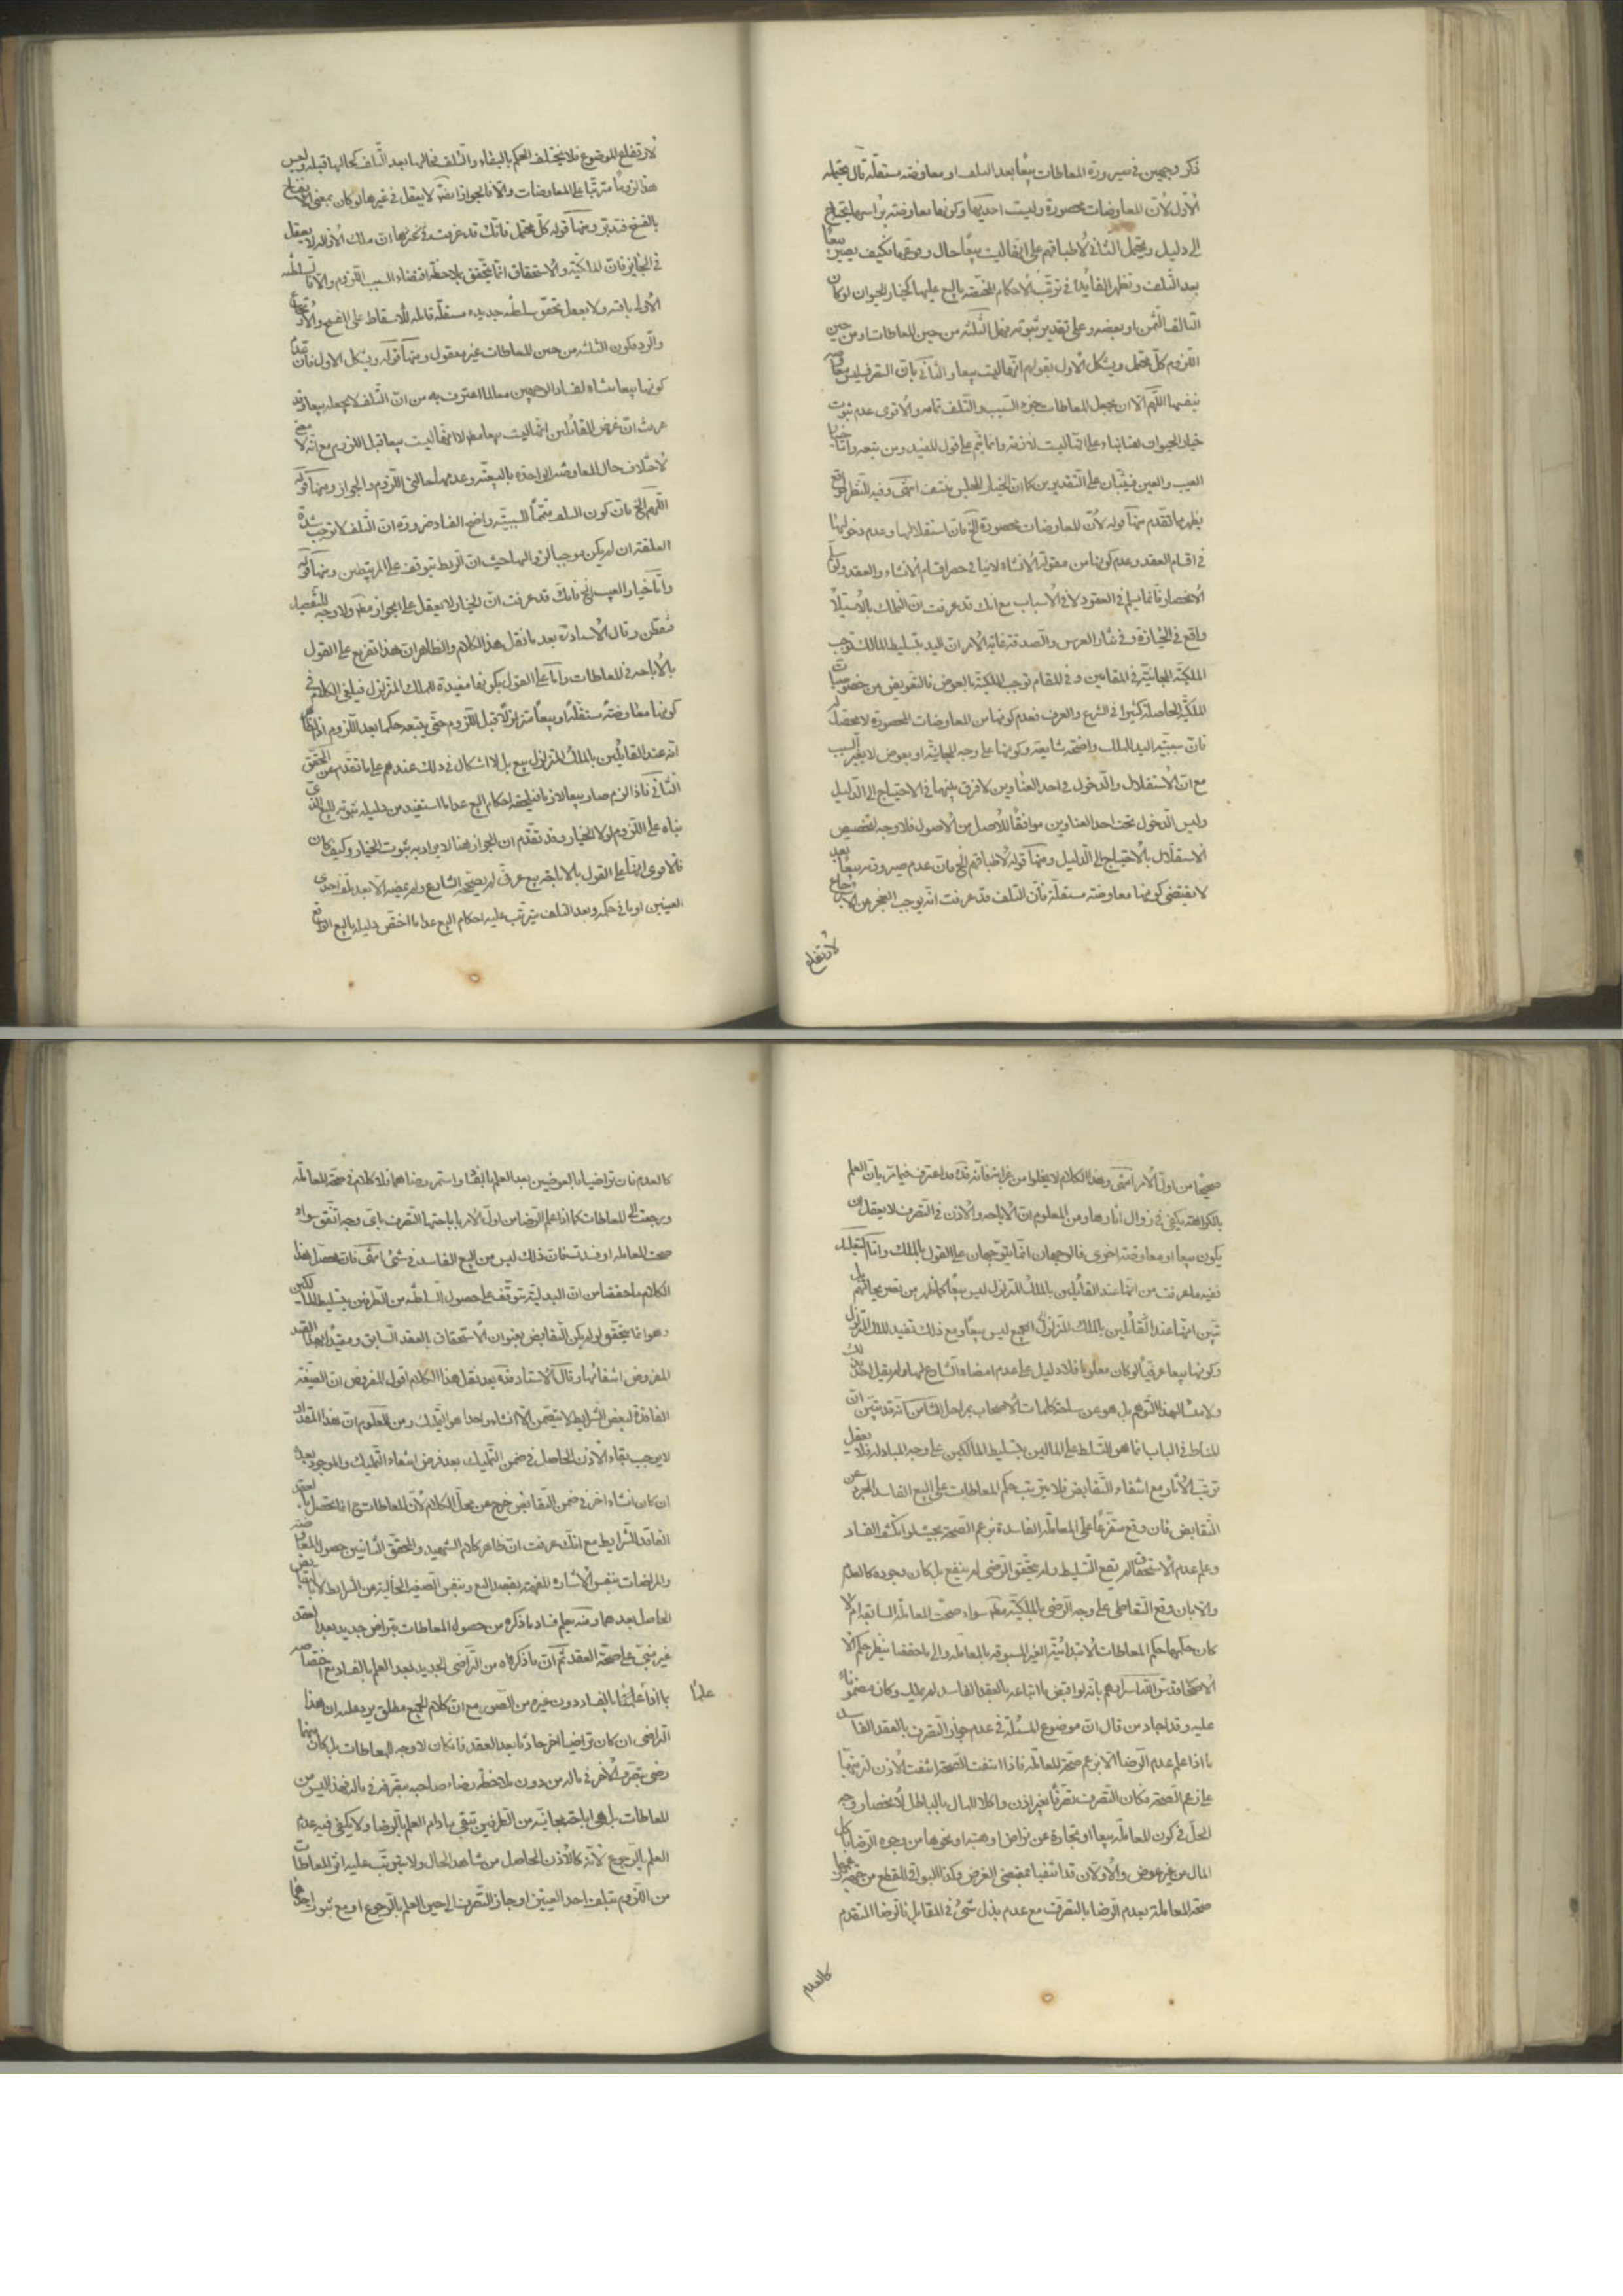 ذكر وجهين في صيرورة المعاطات بيعا بعد التلف او معاوضة مستقلة قال يحتمل
الاول لان المعاوضات محصورة وليست احديها وكونها معاوضة براسها يحتاج
الى دليل ويحتمل الثاني لاطباقهم على انها ليست بيعا حال وقوعها فكيف يصير بيعا
بعد التلف وتظهر الفايدة في ترتب الاحكام المختصة بالبيع عليها كخيار الحيوان لو كان
التالف الثمن او بعضه وعلى تقدير ثبوته فهل الثلثة من حين المعاطات او من حين
اللزوم كل محتمل ويشكل الاول بقولهم انها ليست بيعا والثاني بان التصرف ليس معاوضة
بنفسها اللهم الا ان يجعل المعاطات جزء السبب والتلف تمامه والاقوى عدم ثبوت
خيار الحيوان هنا بناء على انها ليست لازمة وانما يتم على قول المفيد ومن تبعه واما خيار
العيب والغبن فيثبتان على التقديرين كما ان خيار المجلس منتف انتهى وفيه للنظر مواقع
يظهر مما تقدم منها قوله لان المعاوضات محصورة الخ فان استقلالها وعدم دخولها
في اقسام العقد وعدم كونها من مقولة الانشاء لا ينافي حصر اقسام الانشاء والعقد ولو سلم
الانحصار فانما يسلم في العقود لا في الاسباب مع انك قد عرفت ان التملك بالاستيلاء
واقع في الحيازة وفي نثار العرس والصدقة غاية الامر ان اليد بتسليط المالك توجب
الملكية المجانية في المقامين وفي المقام توجب الملكية بالعوض فالتعويض من خصوصيات
الملكية الحاصلة كثيرا في الشرع والعرف فعدم كونها من المعاوضات المحصورة لا محصل له
فان سببية اليد للملك واضحة شايعة وكونها على وجه المجانية او بعوض لا يغير السبب
مع ان الاستقلال والدخول في احد العناوين لا فرق بينهما في الاحتياج الى الدليل
وليس الدخول تحت احد العناوين موافقا للاصل من الاصول فلا وجه لتخصيص
الاستقلال بالاحتياج الى الدليل ومنها قوله لاطباقهم الخ فان عدم صيرورته بيعا بعد
لا يقتضي كونها معاوضة مستقلة فان التلف قد عرفت انه يوجب العجز من الارجاع
لارتفاع
لارتفاع الموضوع فلا يختلف الحكم بالبقاء والتلف فحالها بعد التلف كحالها قبله وليس
هذا لزوما مترتبا على المعاوضات والا فالجواز ايضا لا يعقل في غيرها لو كان بمعنى الارتجاع
بالفسخ فتدبر ومنها قوله كل محتمل فانك قد عرفت في تحريرها ان ملك الازالة لا يعقل
في الجايز فان المالكية والاستحقاق انما يتحقق بملاحظة اقتضاء السبب اللزوم والا فالسلطنة
الاولى باقية ولا يعقل تحقق سلطنة جديدة مستقلة قابلة للاسقاط على الفسخ والارتجاع
والرد فكون الثلثة من حين المعاطات غير معقول ومنها قوله ويشكل الاول فان
كونها بيعا منشاء لفساد الوجهين معا لما اعترف به من ان التلف لا يجعله بيعا وقد
عرفت ان غرض القائلين انها ليست بيعا مط لا انها ليست بيعا قبل اللزوم مع انه لا معنى
لاختلاف حال المعاوضة الواحدة بالبيعية وعدمها بحالتي اللزوم والجواز ومنها قوله
اللهم الخ فان كون التلف متمما للسببية واضح الفساد ضرورة ان التلف لا توجب شدة
العلقة ان لم يكن موجبا لزوالها حيث ان الربط يتوقف على المرتبطين ومنها قوله
واما خيار العيب الخ فانك قد عرفت ان الخيار لا يعقل على الجواز مط ولا وجه للتفصيل
فتفطن وقال الاستاد ره بعد ما نقل هذا الكلام والظاهر ان هذا تفريع على القول
بالاباحة في المعاطات واما على القول بكونها مفيدة للملك المتزلزل فيلغى الكلام في
كونها معاوضة مستقلة او بيعا متزلزلا قبل اللزوم حتى يتبعه حكمها بعد اللزوم اذ الظاهر
انه عند القائلين بالملك المتزلزل بيع بل لا اشكال في ذلك عندهم على ما تقدم من المحقق
الثاني فاذا لزم صار بيعا لازما فيلحقه احكام البيع عدا ما استفيد من دليله ثبوته للبيع الذي
بناه على اللزوم لولا الخيار وقد تقدم ان الجواز هنا لا يراد به ثبوت الخيار وكيف كان
فالاقوى انها على القول بالاباحة بيع عرفي لم يصححه الشارع ولم يمضه الا بعد تلف احدى
العينين او ما في حكمه وبعد التلف يترتب عليه احكام البيع عدا ما اختص دليله بالبيع الواقع
صحيحا من اول الامر انتهى وهذا الكلام لا يخلوا من غرابة فانه قده قد اعترف فيما مر بان العلم
بالكراهة يكفي في زوال اثارها ومن المعلوم ان الاباحة والاذن في التصرف لا يعقل ان
يكون بيعا او معاوضة اخرى فالوجهان انما يتوجهان على القول بالملك واما التعليل
ففيه ما عرفت من انها عند القائلين بالملك المتزلزل ليس بيعا كما ظهر من تصريحاتهم بل
تبين انها عند القائلين بالملك المتزلزل الجميع ليس بيعا ومع ذلك تفيد الملك المتزلزل
وكونها بيعا عرفيا لو كان معلوما فلا دليل على عدم امضاء الشارع لها ولم يقل احد بذلك
ولا منشا لهذا التوهم بل هو عن ساحة كلمات الاصحاب بمراحل الثامن انه قد تبين ان
المناط في الباب انما هو التسلط على المالين بتسليط المالكين على وجه المبادلة فلا يعقل
ترتب الاثار مع انتفاء التقابض فلا يترتب حكم المعاطات على البيع الفاسد المجرد عن
التقابض فان وقع متفرعا على المعاملة الفاسدة بزعم الصحة بحيث لو انكشف الفساد
وعلم عدم الاستحقاق لم يقع التسليط ولم يتحقق الرضى لم ينفع بل كان وجوده كالعدم
والا بان وقع التعاطي على وجه الرضى بالملكية مط سواء صحت المعاملة السابقة ام لا
كان حكمها حكم المعاطات الابتدائية الغير المسبوقة بالمعاملة والى ما حققنا ينظر حكم الا
عليه وقد اجاد من قال ان موضوع المسئلة في عدم جواز التصرف بالعقد الفاسد
ما اذا علم عدم الرضا الا بزعم صحة المعاملة فاذا انتفت الصحة انتفت الاذن لترتبها
على زعم الصحة فكان التصرف تصرفا بغير اذن واكلا للمال بالباطل لانحصار وجه
الحل في كون المعاملة بيعا او تجارة عن تراض او هبة او نحوها من وجوه الرضا باكل
المال من غير عوض والاولان قد انتفيا بمقتضى الفرض وكذا البواقي للقطع من جهة زعمها
صحة المعاملة بعدم الرضا بالتصرف مع عدم بذل شئ في المقابل فالرضا المتقدم
كالعدم
كالعدم فان تراضيا بالعوضين بعد العلم بالفساد واستمر رضاهما فلا كلام في صحة المعاملة
ورجعت الى المعاطات كما اذا علم الرضا من اول الامر باباحتهما التصرف باي وجه اتفق سواء
صحت المعاملة او فسدت فان ذلك ليس من البيع الفاسد في شئ انتهى فان محصل هذا
الكلام ما حققنا من ان البدلية يتوقف على حصول السلطنة من الطرفين بتسليط المالكين
وهو انما يتحقق لو لم يكن التقابض بعنوان الاستحقاق بالعقد السابق ومقيدا بهذا القيد
المفروض انتفائها وقال الاستاد قده بعد نقل هذا الكلام اقول المفروض ان الصيغة
الفاقدة لبعض الشرايط لا تتضمن الا انشاء واحدا هو التمليك ومن المعلوم ان هذا المقدار
لا يوجب بقاء الاذن الحاصل في ضمن التمليك بعد فرض انتفاء التمليك والموجود بعده
ان كان انشاء اخر في ضمن التقابض خرج عن محل الكلام لان المعاطات انما تحصل بالعقد
الفاقد الشرايط مع انك عرفت ان ظاهر كلام الشهيد والمحقق الثانيين حصول المعاوضة
والمراضات بنفس الاشارة المفهمة بقصد البيع وبنفس الصيغة الخالية عن الشرايط لا بالتقابض
الحاصل بعدهما ومنه يعلم فساد ما ذكره من حصول المعاطات بتراض جديد بعد العقد
غير مبني على صحة العقد ثم ان ما ذكره من التراضي الجديد بعد العلم بالفساد مع اختصاصه
بما اذا علما بالفساد دون غيره من الصور مع ان كلام الجميع مطلق يرد عليه ان هذا
علما
التراضي ان كان تراضيا اخر حادثا بعد العقد فان كان لا وجه المعاطات بل كان منهما
رضى بتصرف الاخر في ماله من دون ملاحظة رضاء صاحبه بتصرفه في ماله فهذا ليس من
المعاطات بل هي اباحة مجانية من الطرفين تبقى ما دام العلم بالرضا ولا يكفي فيه عدم
العلم بالرجوع لانه كالاذن الحاصل من شاهد الحال ولا يترتب عليه اثر المعاطات
من اللزوم بتلف احد العينين او جواز التصرف الى حين العلم بالرجوع او مع ثبوت احدهما